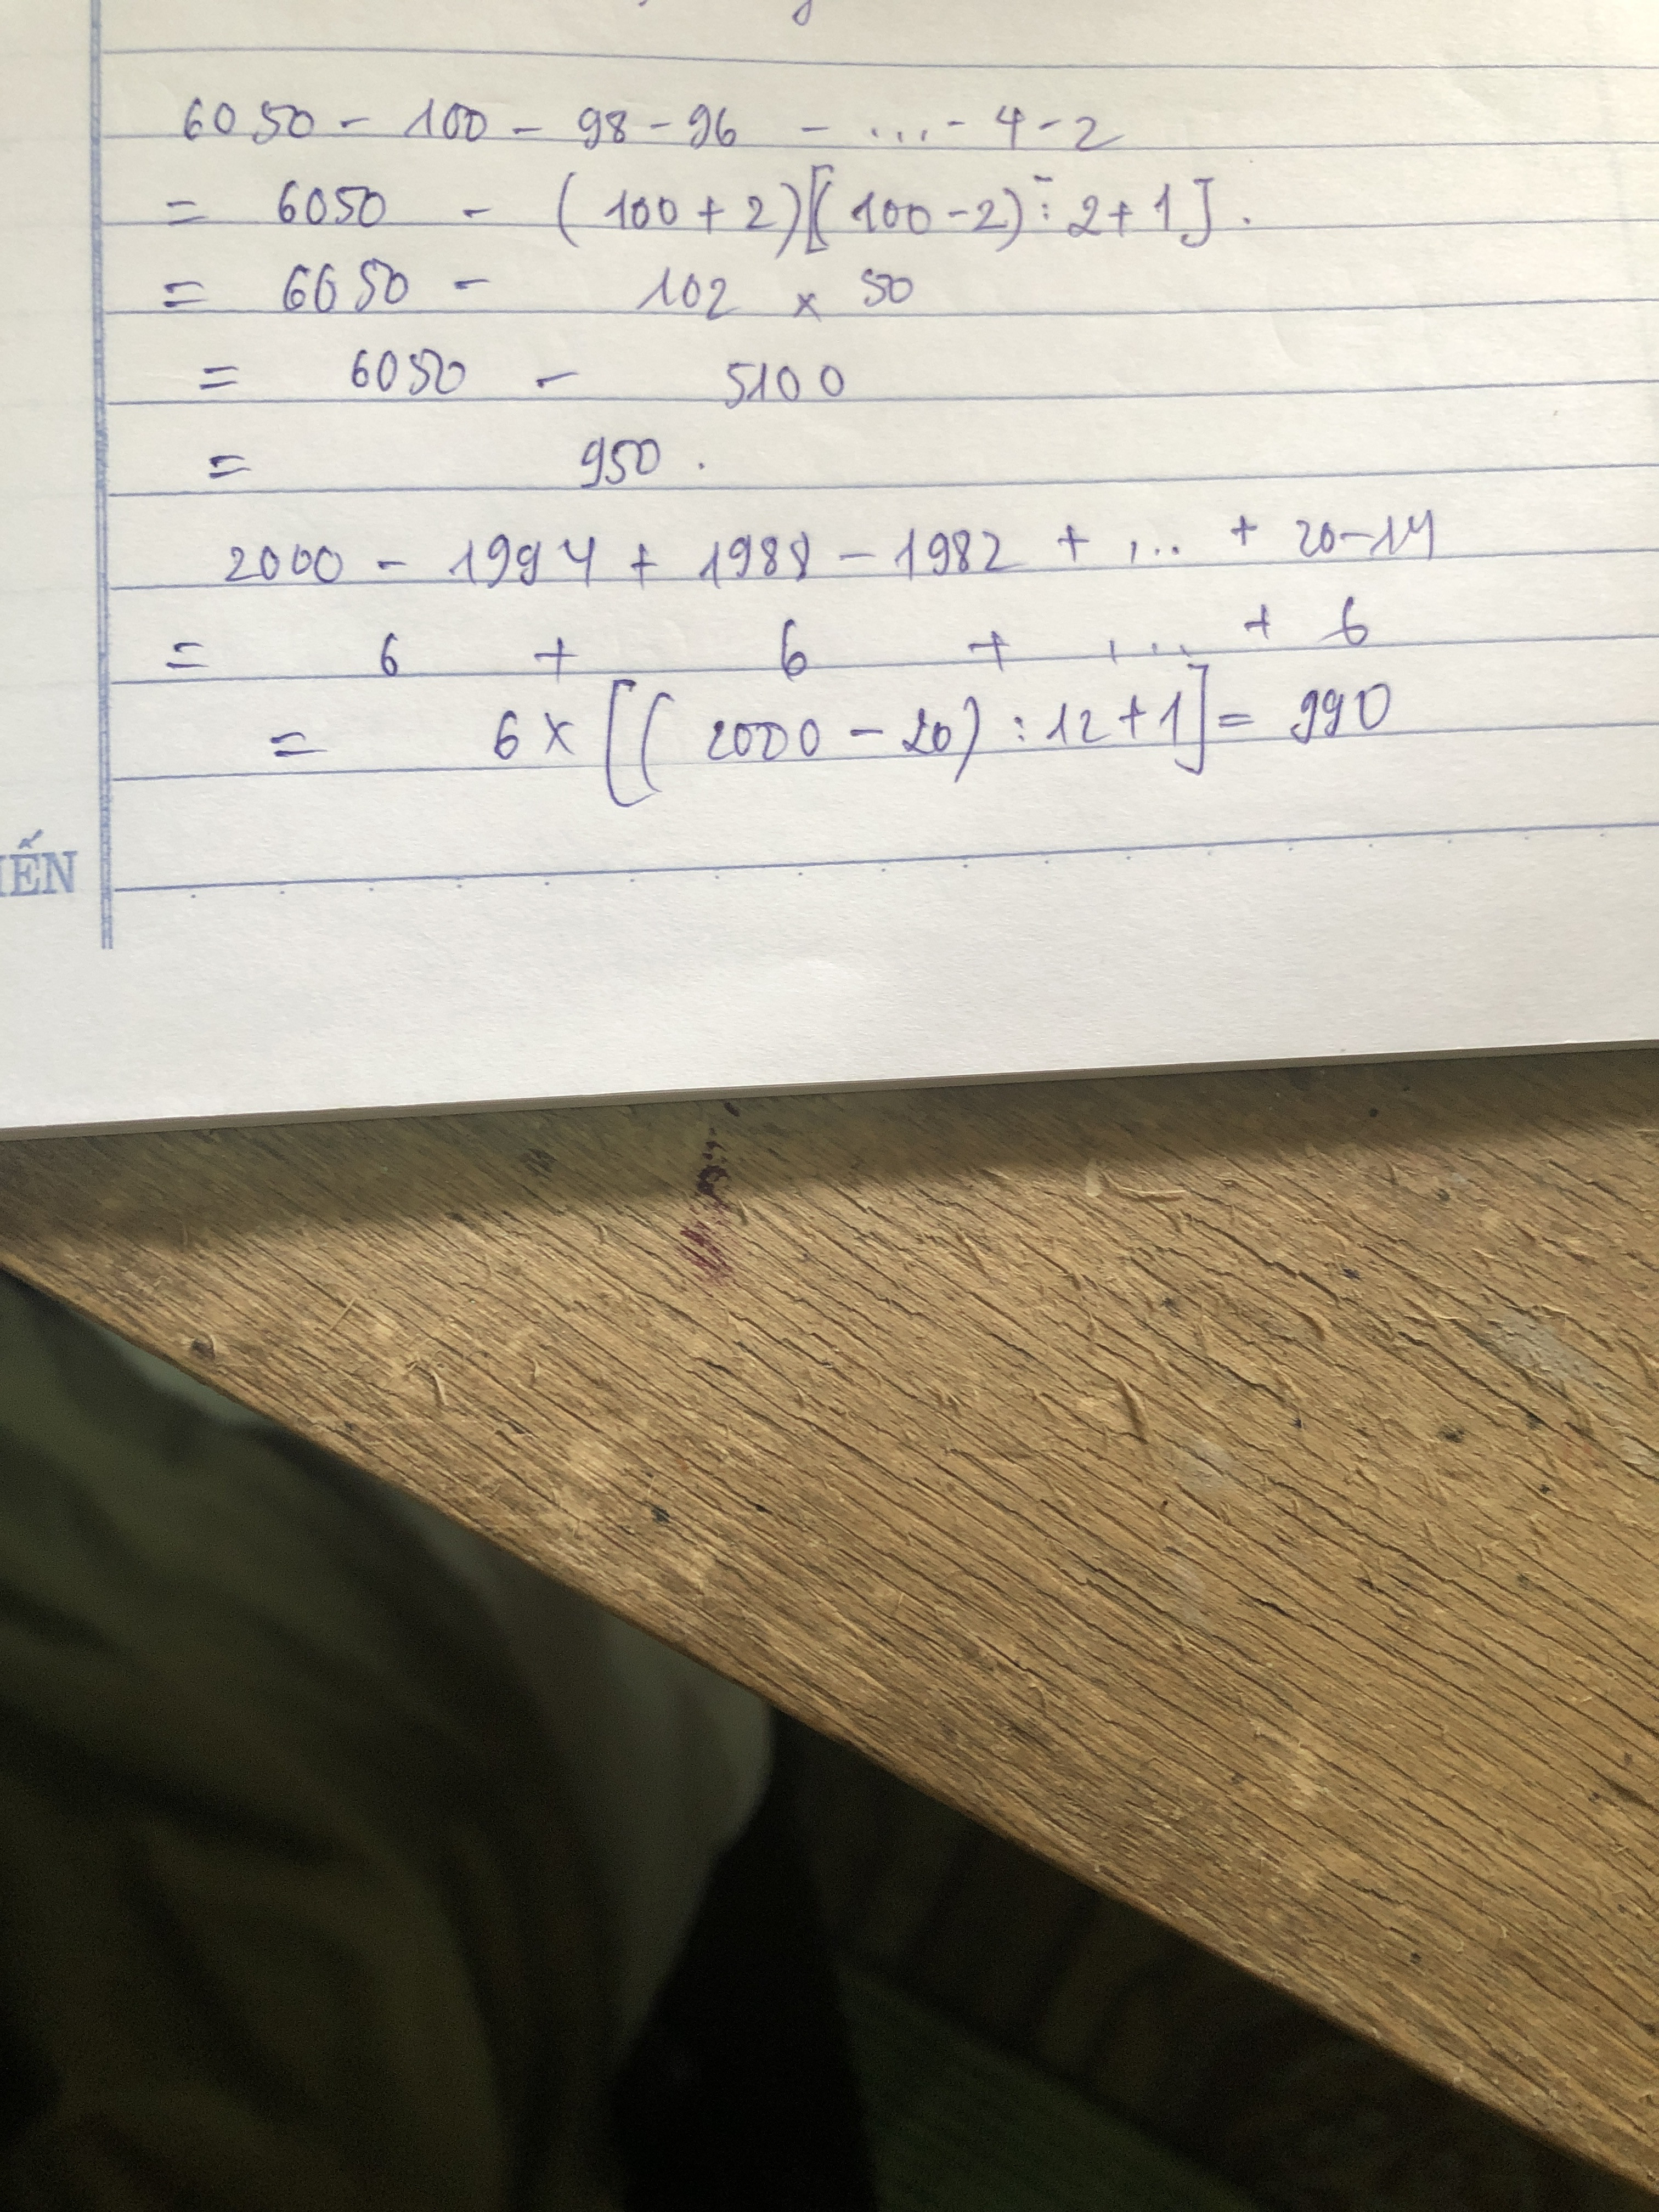 6050 - 100 - 98 - 96 - ... - 4 - 2
= 6050 - (100 + 2)[(100 - 2) : 2 + 1].
= 6050 - 102 x 50
= 6050 - 5100
= 950.
2000 - 1994 + 1988 - 1982 + ... + 20 - 14
= 6 + 6 + ... + 6
= 6 x [(2000 - 20) : 12 + 1] = 990
IẾN